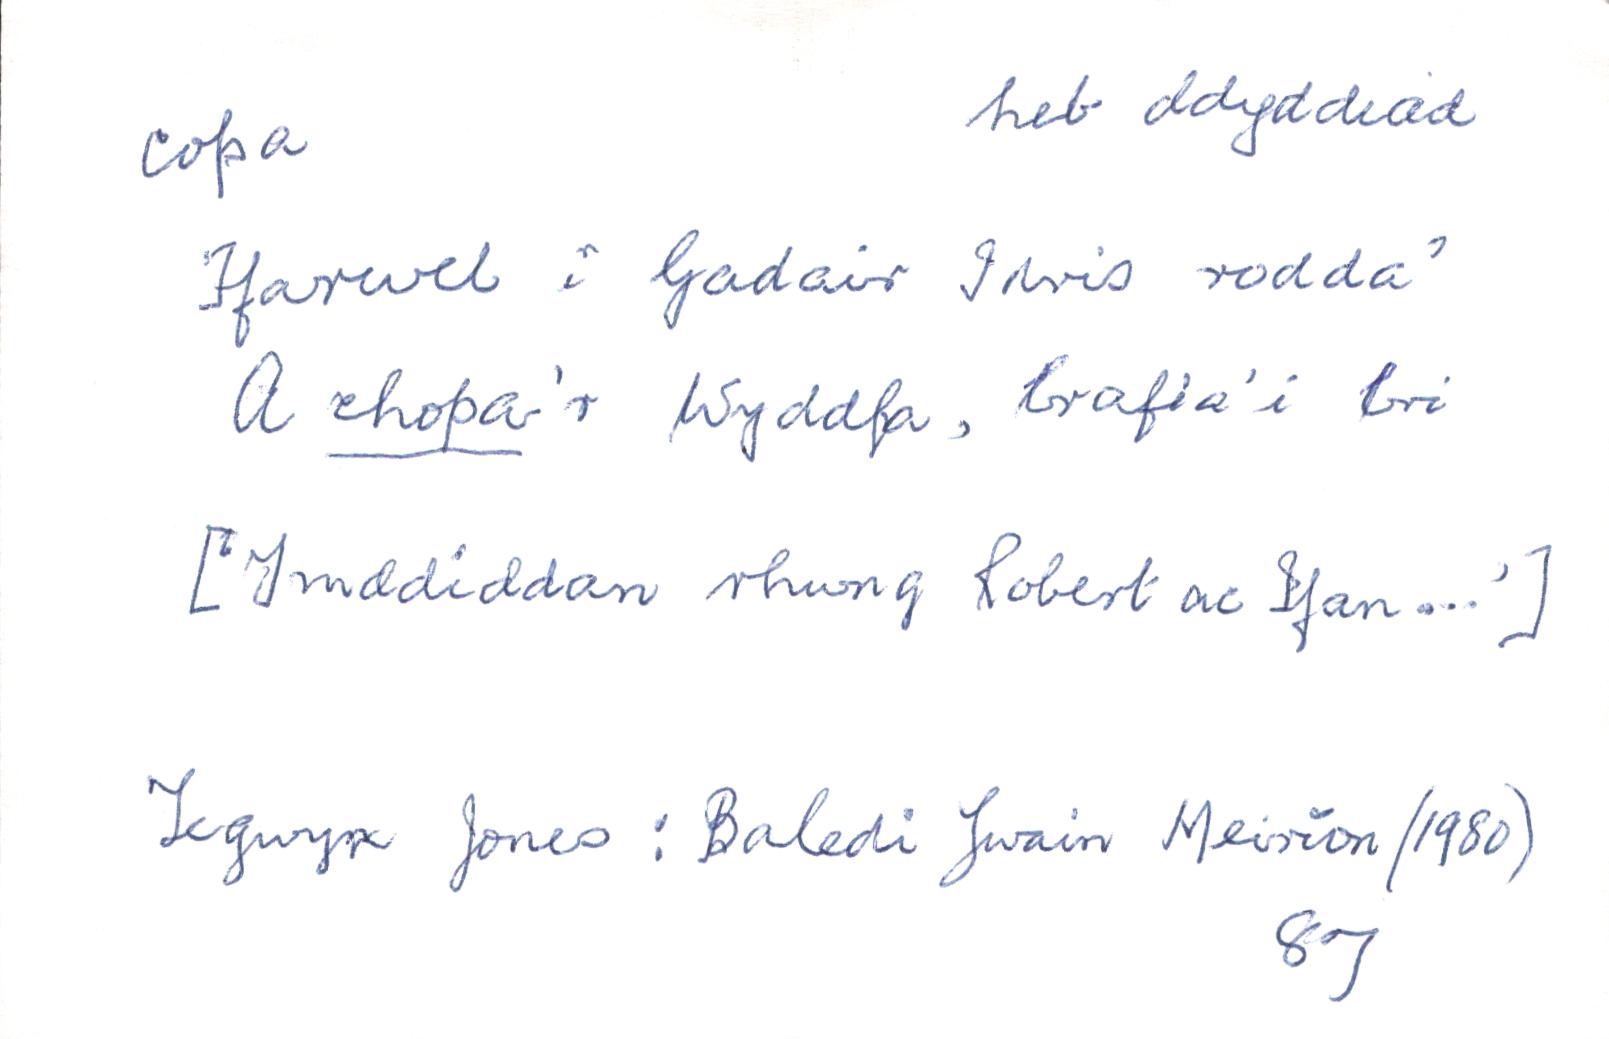 copa
heb ddyddiad
Ffarwel i Gadair Idris rodda'
A chopa'r Wyddfa, brafia'i bri
['Ymddiddan rhwng Robert ac Ifan...']
Tegwyn Jones : Baledi Ywain Meirion (1980)
87